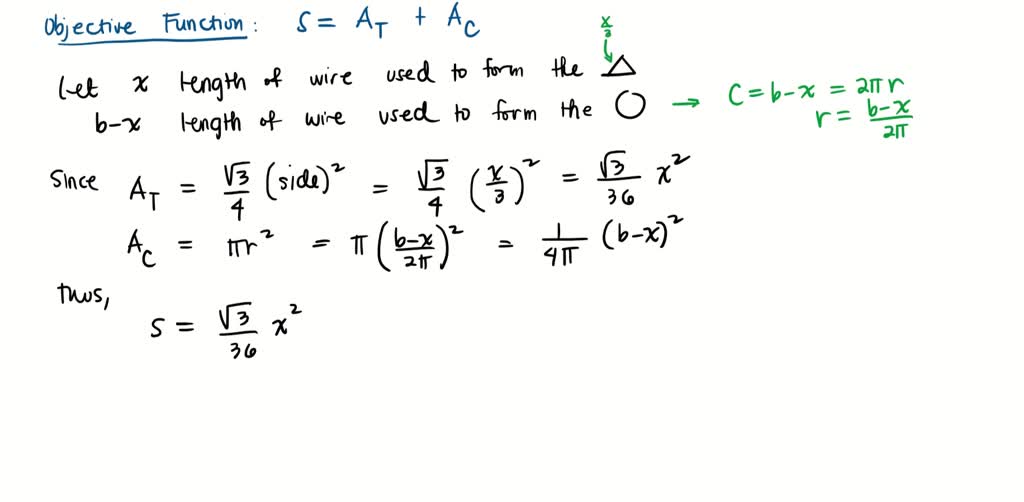 Objective Function: S = A_T + A_C
x/3
Let x length of wire used to form the △
b-x length of wire used to form the ○ → C = b-x = 2πr
r = (b-x)/2π
Since A_T = √3/4 (side)² = √3/4 (x/3)² = √3/36 x²
A_C = πr² = π((b-x)/2π)² = 1/4π (b-x)²
thus,
S = √3/36 x²